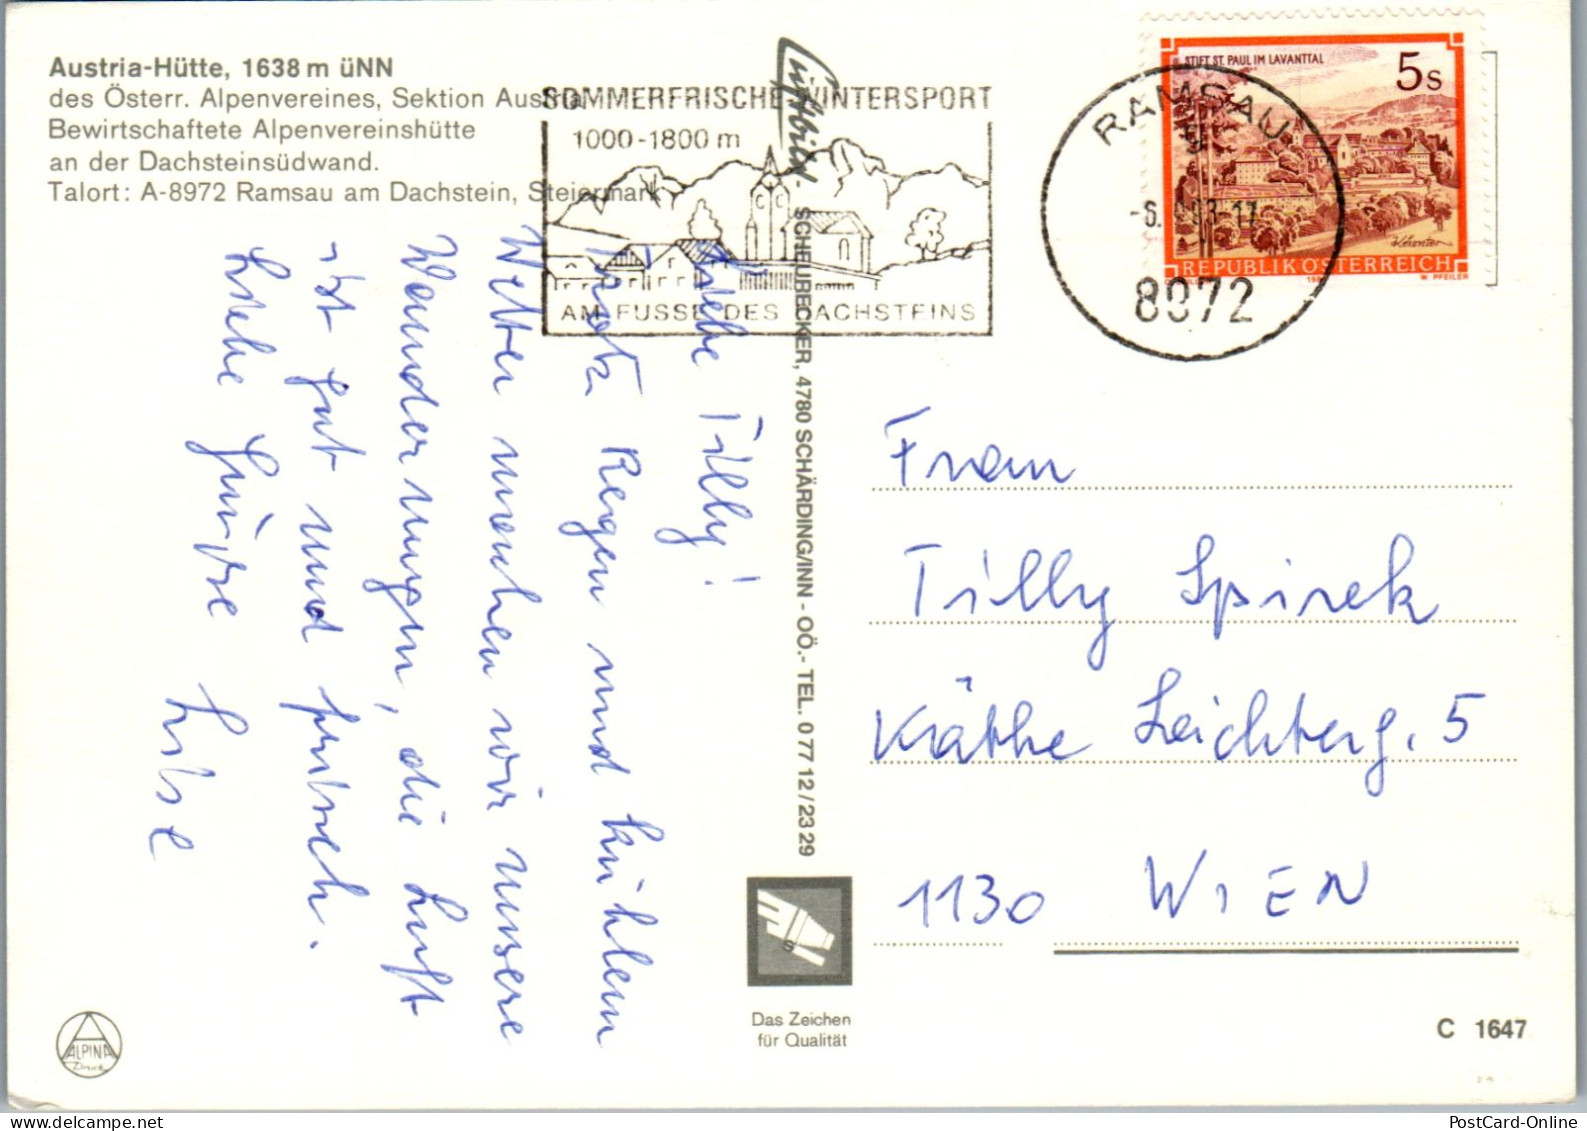 Austria-Hütte, 1638 m üNN
des Österr. Alpenvereines, Sektion Austria
Bewirtschaftete Alpenvereinshütte
an der Dachsteinsüdwand.
Talort: A-8972 Ramsau am Dachstein, Steiermark
SOMMERFRISCHE WINTERSPORT
1000-1800 m
AM FUSSE DES DACHSTEINS
RAMSAU
8972
STIFT ST. PAUL IM LAVANTTAL
5 S
REPUBLIK ÖSTERREICH
W. PFEILER
Luftbild
SCHEURECKER, 4780 SCHÄRDING/INN - OÖ.- TEL. 0 77 12 / 23 29
Liebe Tilly!
Trotz Regen und kühlem
Wetter machen wir unsere
Wanderungen, die Luft
ist gut und frisch.
Liebe Grüße
Lisl
Frau
Tilly Spirek
Käthe Leichterg. 5
1130 WIEN
Das Zeichen
für Qualität
ALPINA
Druck
C 1647
PostCard-Online